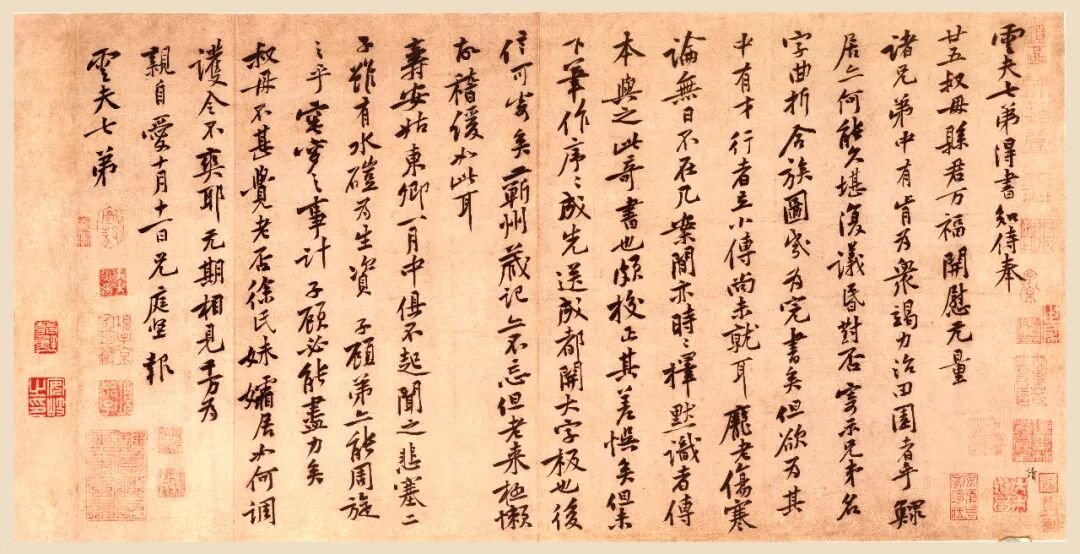 雲夫七弟得書知侍奉
廿五叔母縣君万福開慰无量
諸兄弟中有肯為衆竭力治田園者乎鰥
居亦何能久堪復議昏對否寄示兄弟名
字曲折合族圖幾為完書矣但欲為其
中有才行者立小傳尚未就耳龐老傷寒
論無日不在几案間亦時〻擇默識者傳
本與之此奇書也頗校正其差悞矣但未
下筆作序〻成先送成都開大字板也後
信可寄矣蘄州藏記亦不忘但老来極懶
故稽緩如此耳
壽安姑東卿一月中俱不起聞之悲塞二
子雖有水磑為生資子顧弟亦能周旋
之乎窀穸之事計子顧必能盡力矣
叔母不甚覺老否徐氏妹孀居如何調
護令不爽耶无期相見千万為
親自愛十月十一日兄庭堅報
雲夫七弟